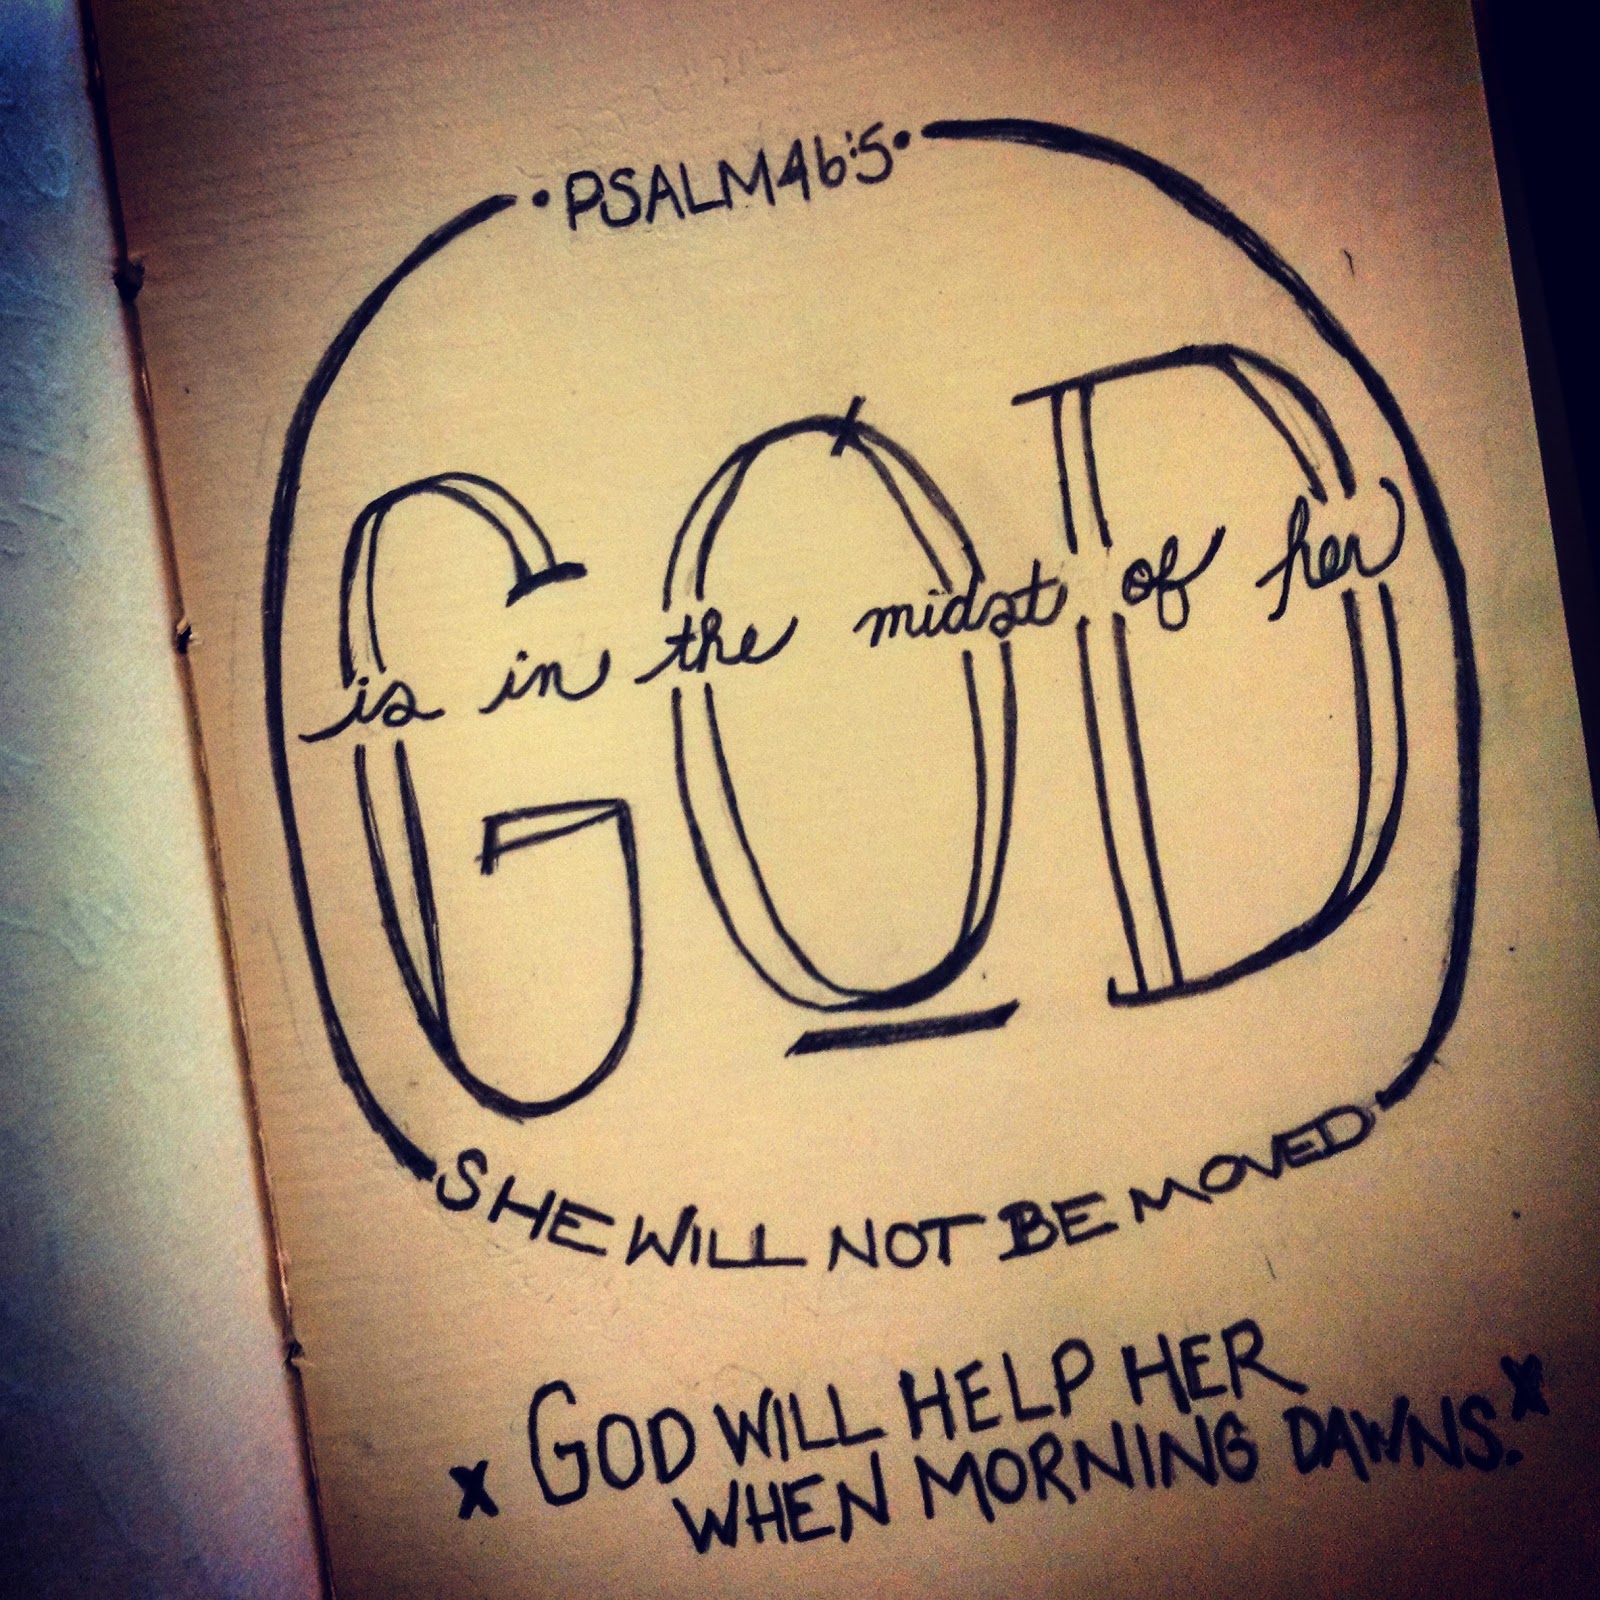 •PSALM 46:5•
GOD
is in the midst of her
SHE WILL NOT BE MOVED
x GOD WILL HELP HER
WHEN MORNING DAWNS. x